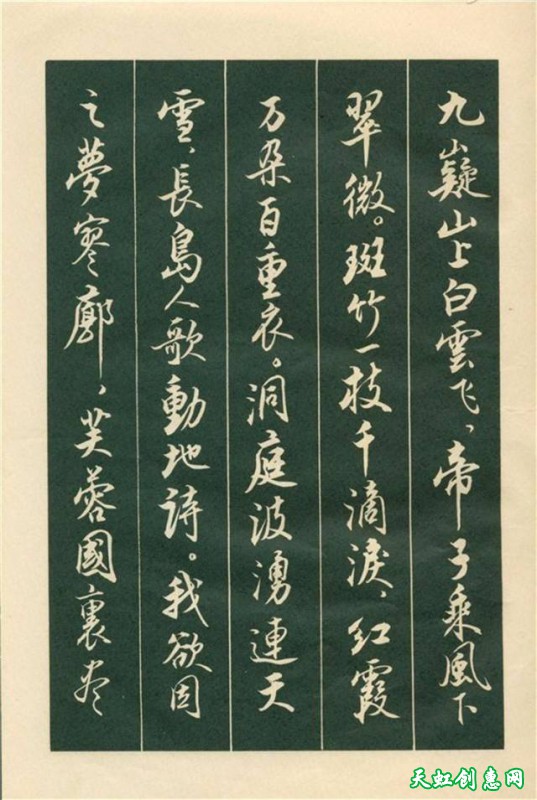 九嶷山上白雲飞，帝子乘風下
翠微。斑竹一枝千滴淚，红霞
万朵百重衣。洞庭波湧連天
雪，長島人歌動地詩。我欲因
之夢寥廓，芙蓉國裏尽
天虹创惠网